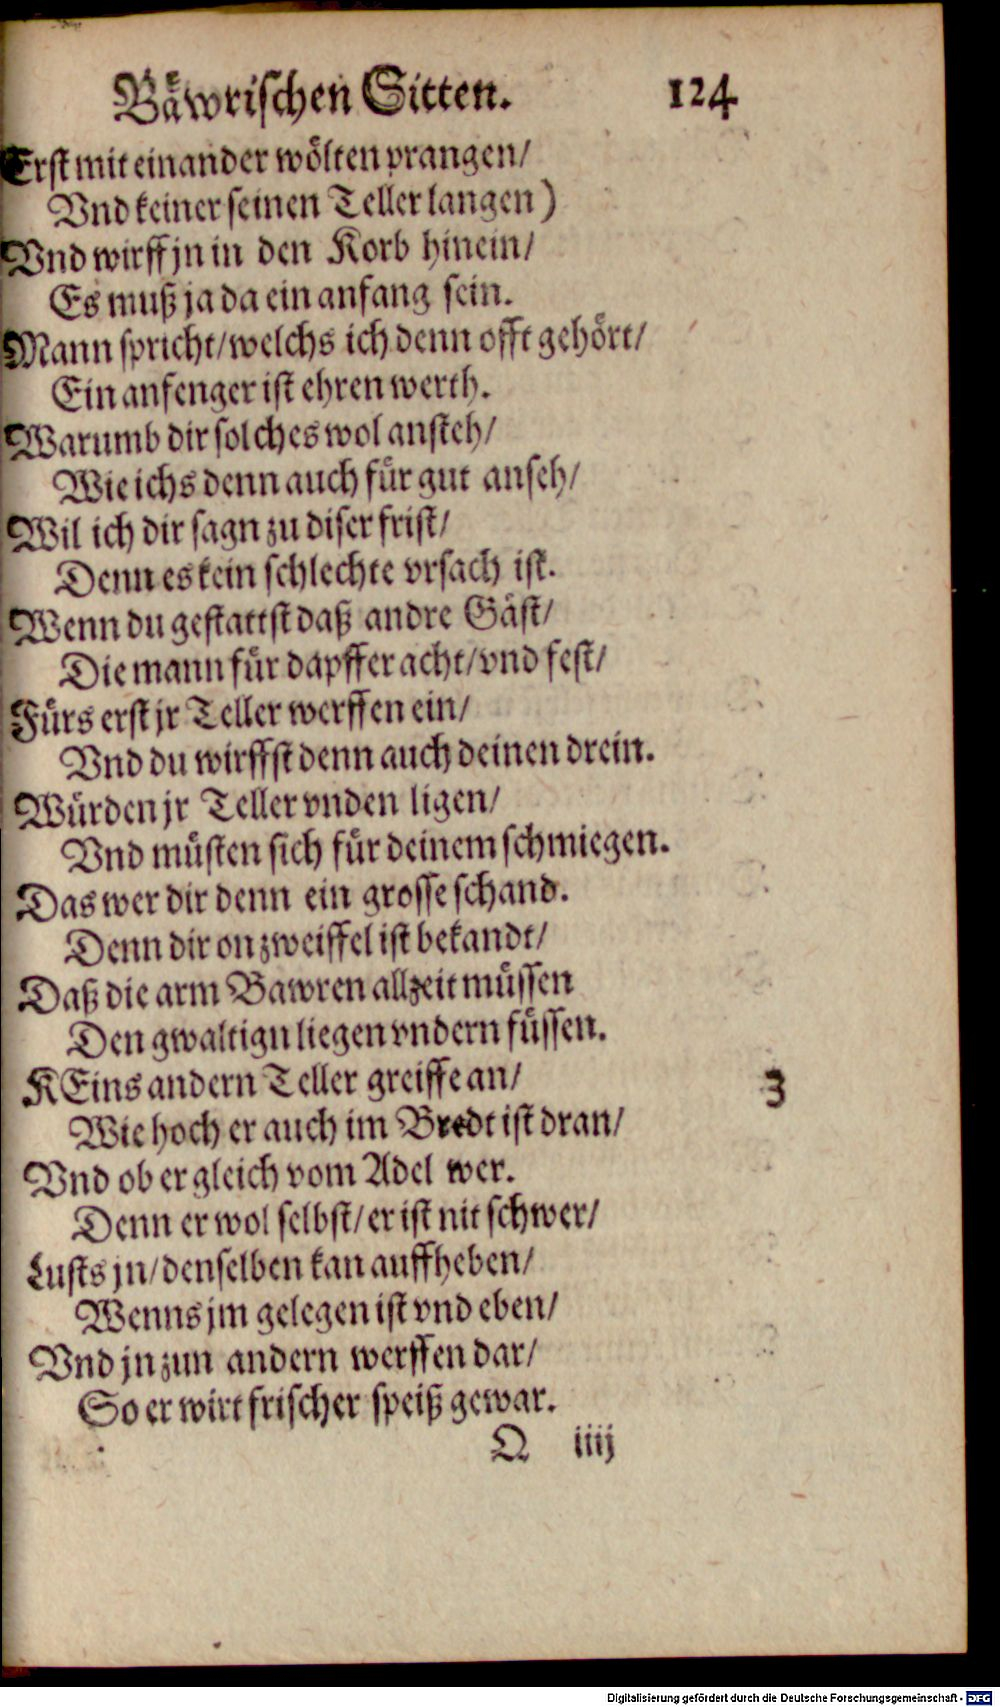 Bäwrischen Sitten. 124
Erst mit einander wölten prangen/
Vnd keiner seinen Teller langen)
Vnd wirff jn in den Korb hinein/
Es muß ja da ein anfang sein.
Mann spricht/welchs ich denn offt gehört/
Ein anfenger ist ehren werth.
Warumb dir solches wol ansteh/
Wie ichs denn auch für gut anseh/
Wil ich dir sagn zu diser frist/
Denn es kein schlechte vrsach ist.
Wenn du gestattst daß andre Gäst/
Die mann für dapffer acht/vnd fest/
Fürs erst jr Teller werffen ein/
Vnd du wirffst denn auch deinen drein.
Würden jr Teller vnden ligen/
Vnd müsten sich für deinem schmiegen.
Das wer dir denn ein grosse schand.
Denn dir on zweiffel ist bekandt/
Daß die arm Bawren allzeit müssen
Den gwaltign liegen vndern füssen.
KEins andern Teller greiffe an/ 3
Wie hoch er auch im Bredt ist dran/
Vnd ob er gleich vom Adel wer.
Denn er wol selbst/er ist nit schwer/
Lusts jn/denselben kan auffheben/
Wenns jm gelegen ist vnd eben/
Vnd jn zun andern werffen dar/
So er wirt frischer speiß gewar.
Q iiij
Digitalisierung gefördert durch die Deutsche Forschungsgemeinschaft - DFG